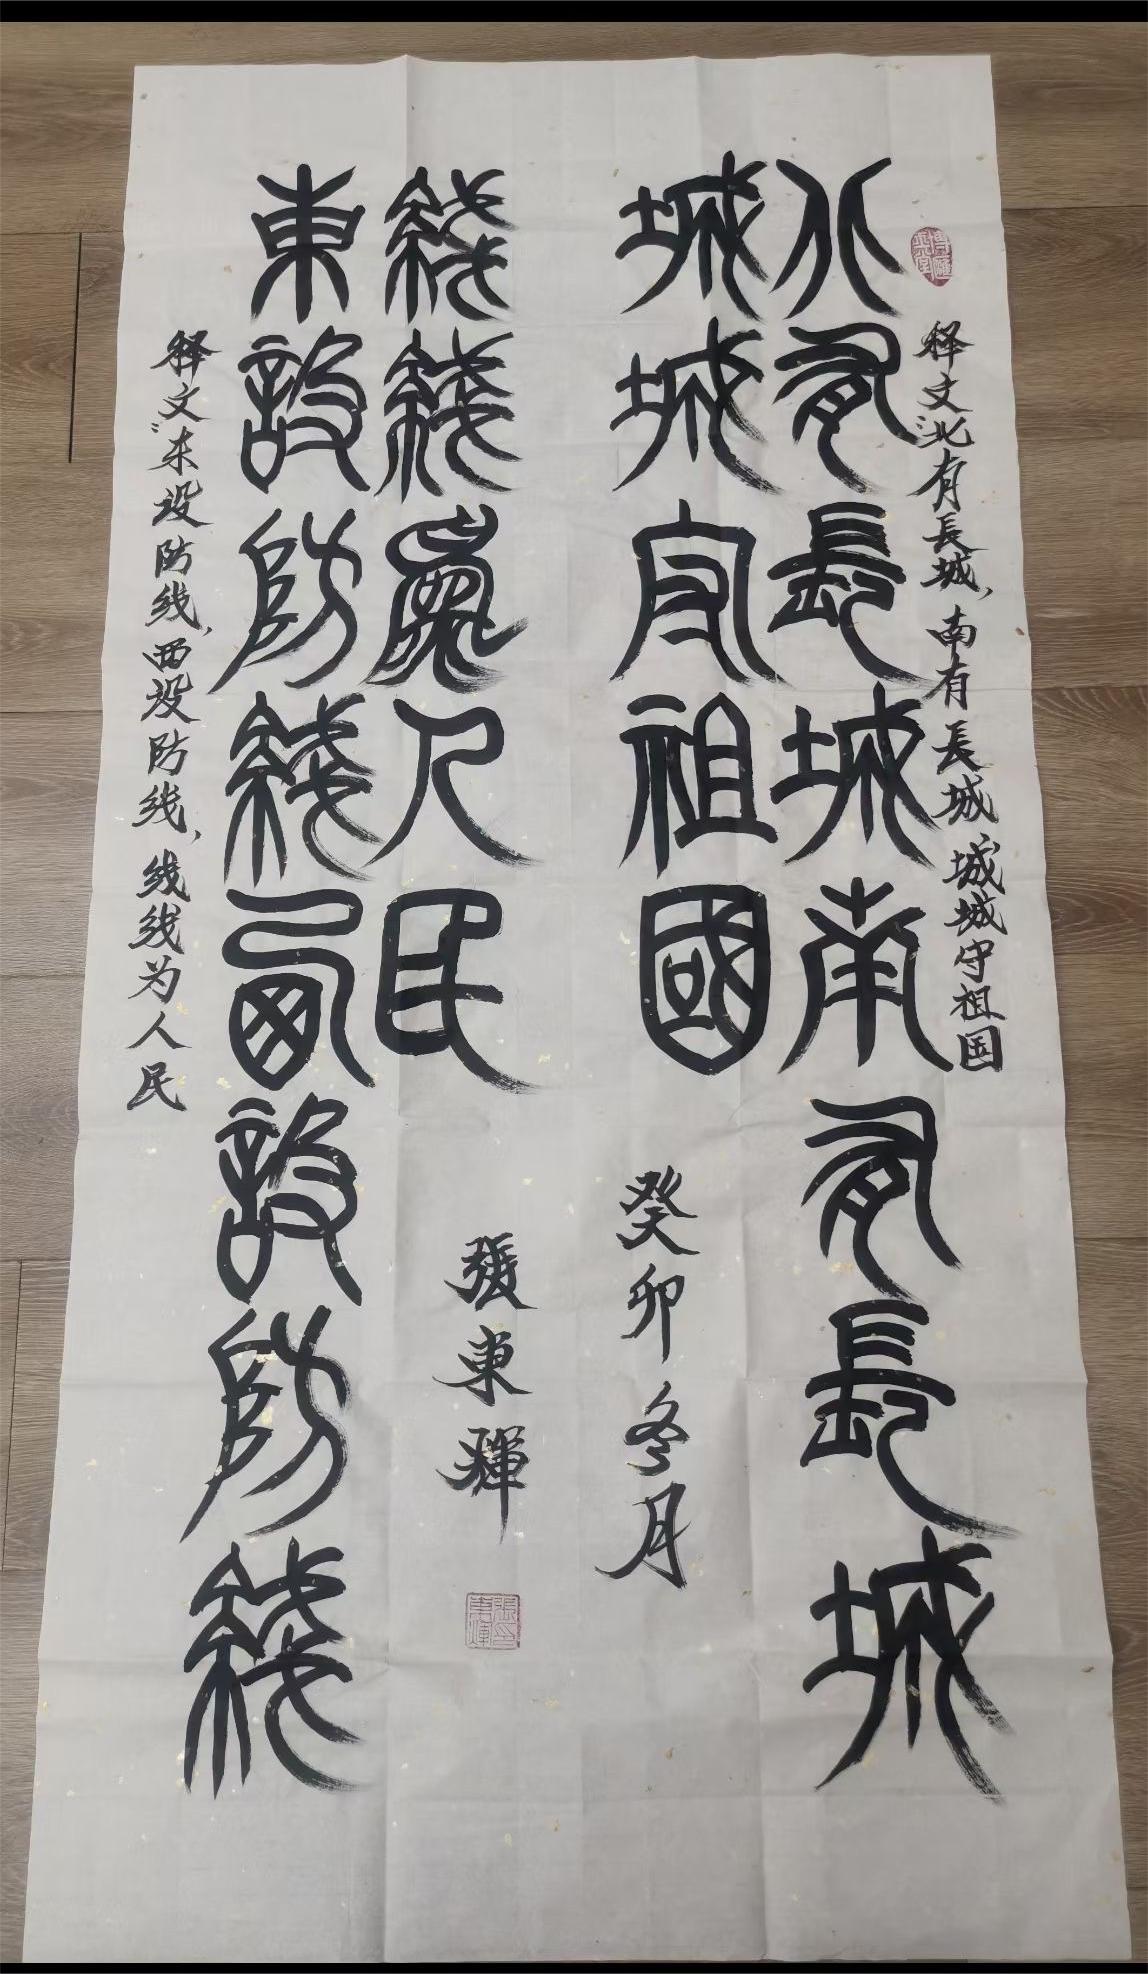 释文:北有長城,南有長城,城城守祖国
北有長城南有長城
城城守祖國
癸卯冬月
释文:东设防线,西设防线,线线为人民
東設防綫西設防綫
綫綫為人民
張東輝